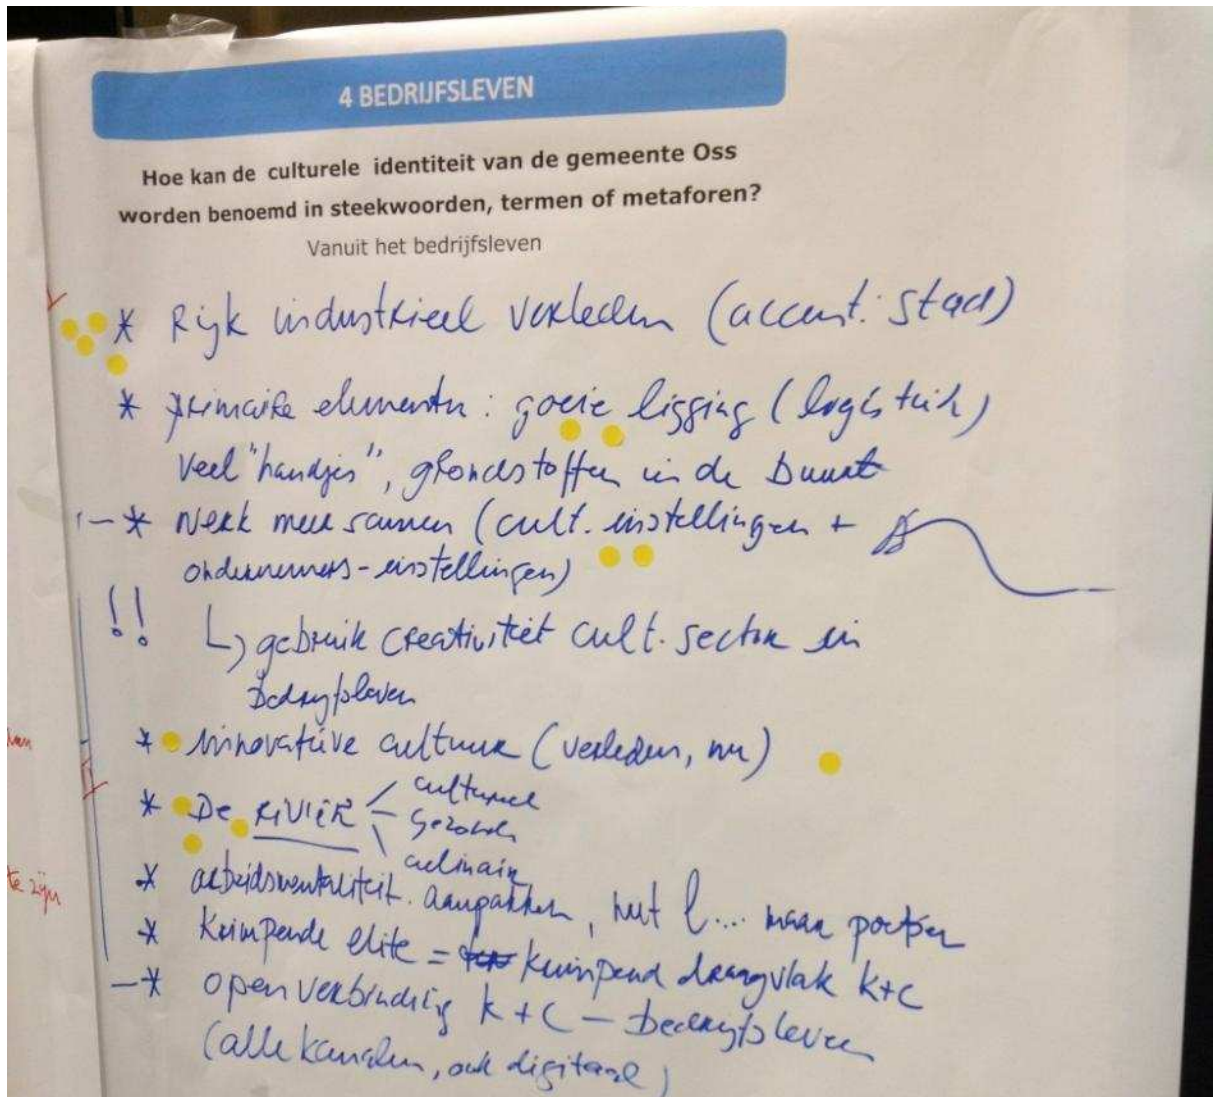 4 BEDRIJFSLEVEN
Hoe kan de culturele identiteit van de gemeente Oss
worden benoemd in steekwoorden, termen of metaforen?
Vanuit het bedrijfsleven
* Rijk industrieel verleden (accent: stad)
* primaire elementen: goeie ligging (logistiek)
veel "handjes", grondstoffen in de buurt
* Werk meer samen (cult. instellingen +
ondernemers-instellingen)
!! ↳ gebruik creativiteit cult. sector in
bedrijfsleven
van
* innovatieve cultuur (verleden, nu)
* De RIVIER
cultureel
gezond
culinair
te zijn
* arbeidsmentaliteit. aanpakken, niet l.... maar poetsen
* Krimpende elite = krimpend draagvlak k+c
* open verbinding k+c – bedrijfsleven
(alle kanalen, ook digitaal)